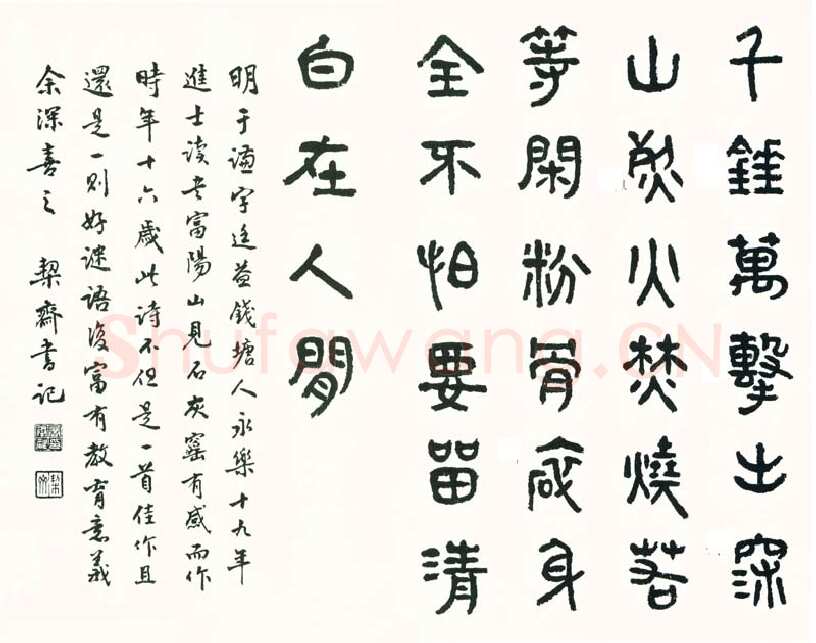 千錘萬擊出深
山烈火焚燒若
等閑粉骨碎身
全不怕要留清
白在人間
明于謙字廷益錢塘人永樂十九年
進士讀書富陽山見石灰窰有感而作
時年十六歲此詩不但是一首佳作且
還是一則好謎語復富有教育意義
余深喜之 栔齋書記
Shufawang.CN